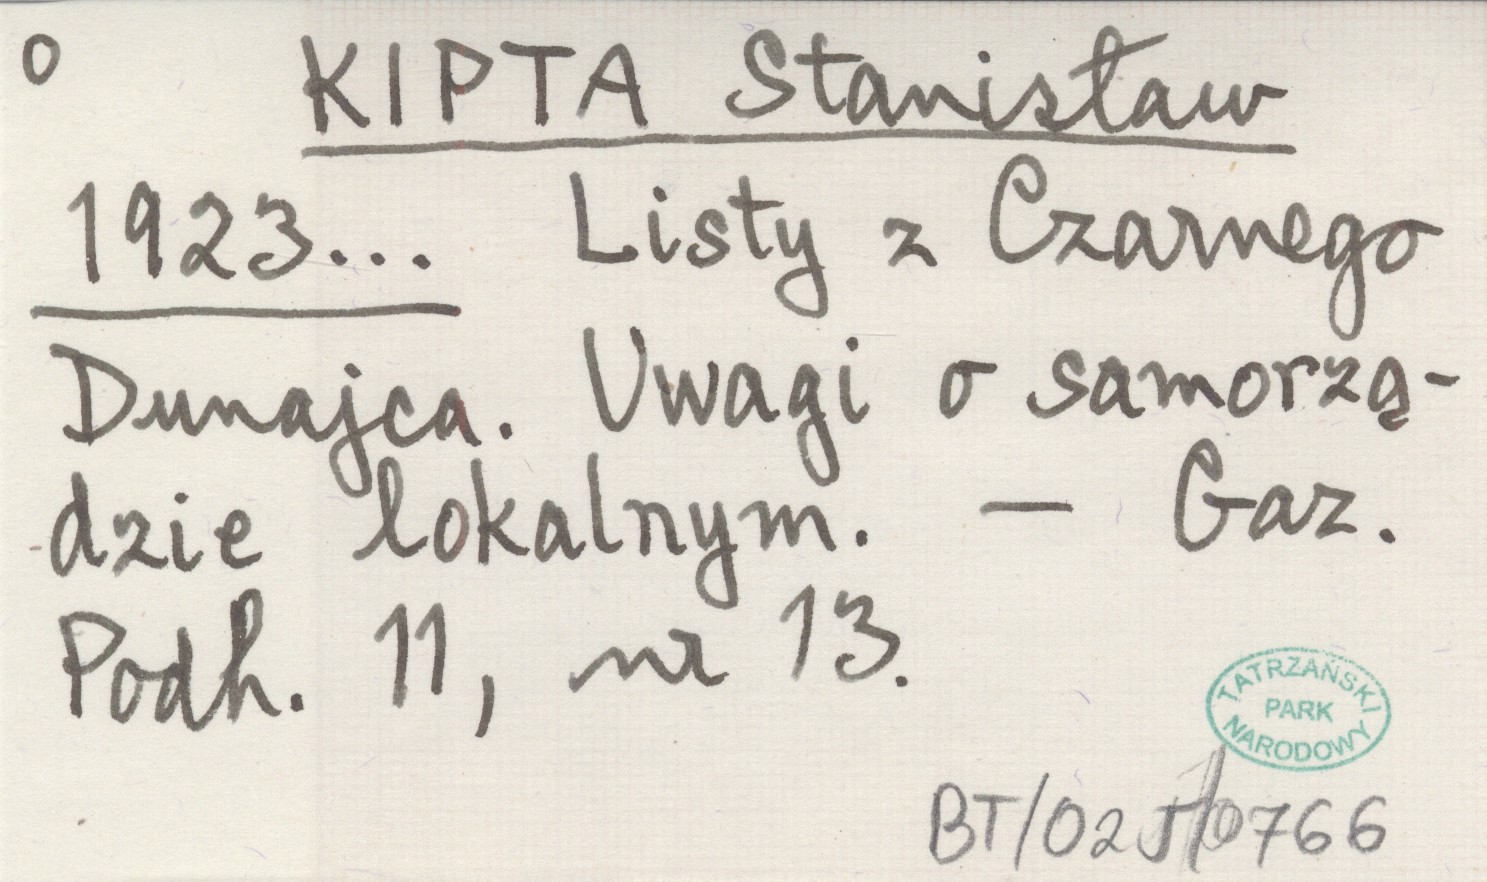 o KIPTA Stanisław
1923... Listy z Czarnego
Dunajca. Uwagi o samorzą-
dzie lokalnym. — Gaz.
Podh. 11, nr 13.
TATRZAŃSKI
PARK
NARODOWY
BT/025/0766